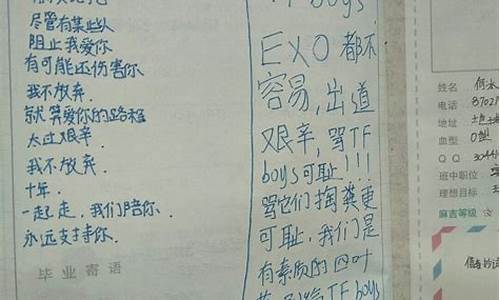 尽管有某些人
阻止我爱你
有可能还伤害你
我不放弃.
就算爱你的路程
太过艰辛.
我不放弃.
十年.
一起走,我们陪你.
永远支持你.
毕业寄语
boys
EXO都不
容易,出道
艰辛,骂TF
boys可耻!!!
骂它们掏粪更
可耻,我们是
有素质的四叶
TF boys
姓名
电话 8702
地址
血型 O型
QQ 3044
班中职位
理想目标
麻吉等级